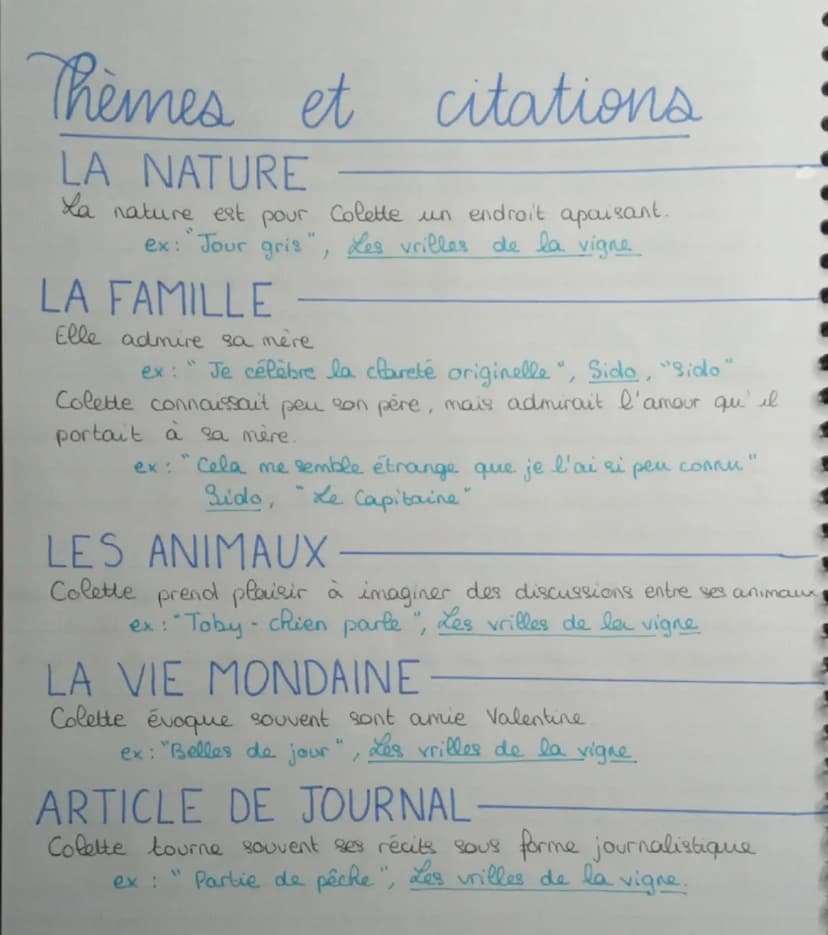 Thèmes et citations
LA NATURE
La nature est pour Colette un endroit apaisant.
ex: "Jour gris", Les vrilles de la vigne
LA FAMILLE
Elle admire sa mère
ex: "Je célèbre la clareté originelle", Sido, "Sido"
Colette connaissait peu son père, mais admirait l'amour qu'il
portait à sa mère.
ex: "Cela me semble étrange que je l'ai si peu connu"
Sido, "Le Capitaine"
LES ANIMAUX
Colette prend plaisir à imaginer des discussions entre ses animaux
ex: "Toby-chien parle", Les vrilles de la vigne
LA VIE MONDAINE
Colette évoque souvent sont amie Valentine
ex: "Belles de jour", Les vrilles de la vigne
ARTICLE DE JOURNAL
Colette tourne souvent ses récits sous forme journalistique
ex : "Partie de pêche", Les vrilles de la vigne.